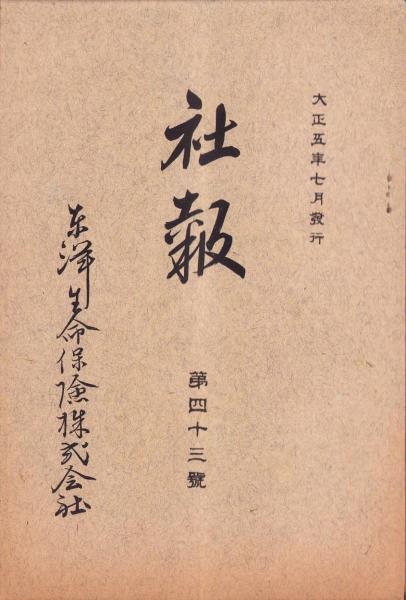 大正五年七月發行
社報
第四十三號
東洋生命保險株式会社